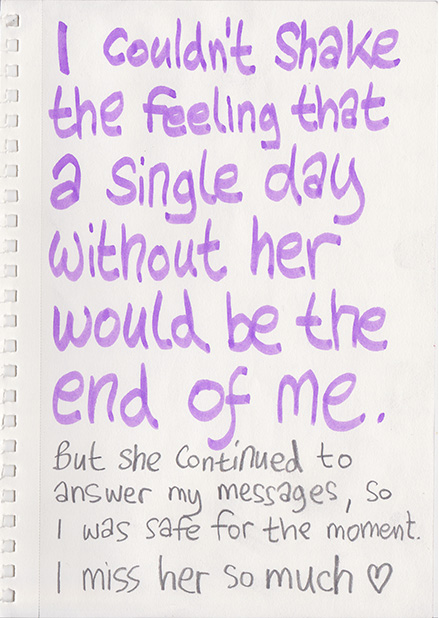 I couldn't shake
the feeling that
a single day
without her
would be the
end of me.
But she continued to
answer my messages, so
I was safe for the moment.
I miss her so much ♡